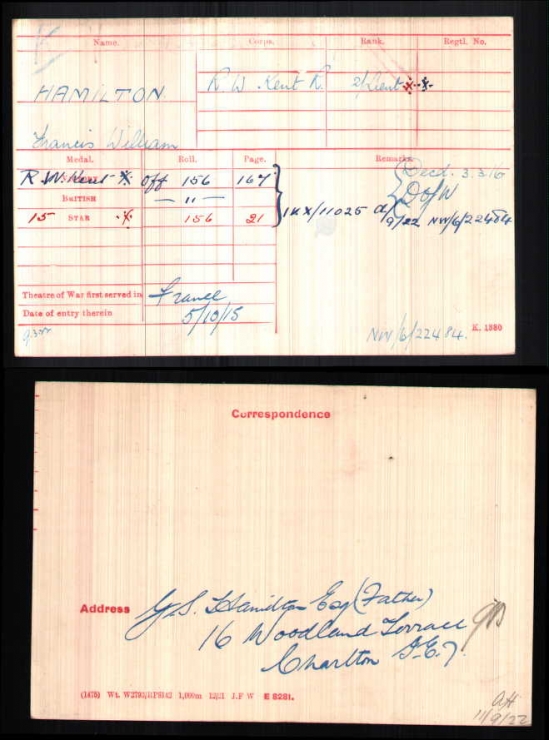 Name. Corps. Rank. Regtl. No.
HAMILTON R W. Kent R. 2/Lieut
Francis William
Medal. Roll. Page. Remarks.
R.W. Kent off 156 167 Decd. 3.3.16
BRITISH — " — D of W
15 STAR 156 21 1KX/11025 9/22 NW/6/22484
Theatre of War first served in France
Date of entry therein 5/10/15
NW/6/22484. K. 1380
Correspondence
Address Hamilton Esq (Father)
16 Woodland Terrace
Charlton S.E.7.
1,000m 12/21 J.F W E 8281.
11/9/22